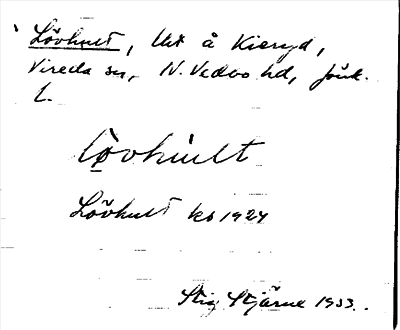 Lövhult, lht å Kieryd,
Vireda sn, N. Vedbo hd, Jönk.
L.
lòvhùlt
Lövhult kb 1924
Stig Stjärne 1933.